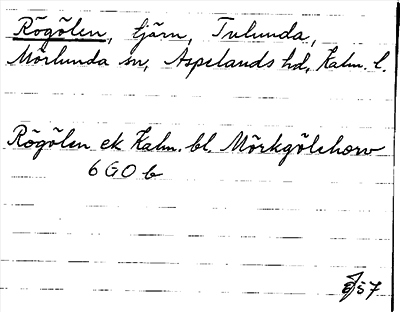 Rögölen, tjärn, Tulunda,
Mörlunda sn, Aspelands hd, Kalm. l.
Rögölen ek Kalm. bl. Mörkgölehorv
6 G O b
57